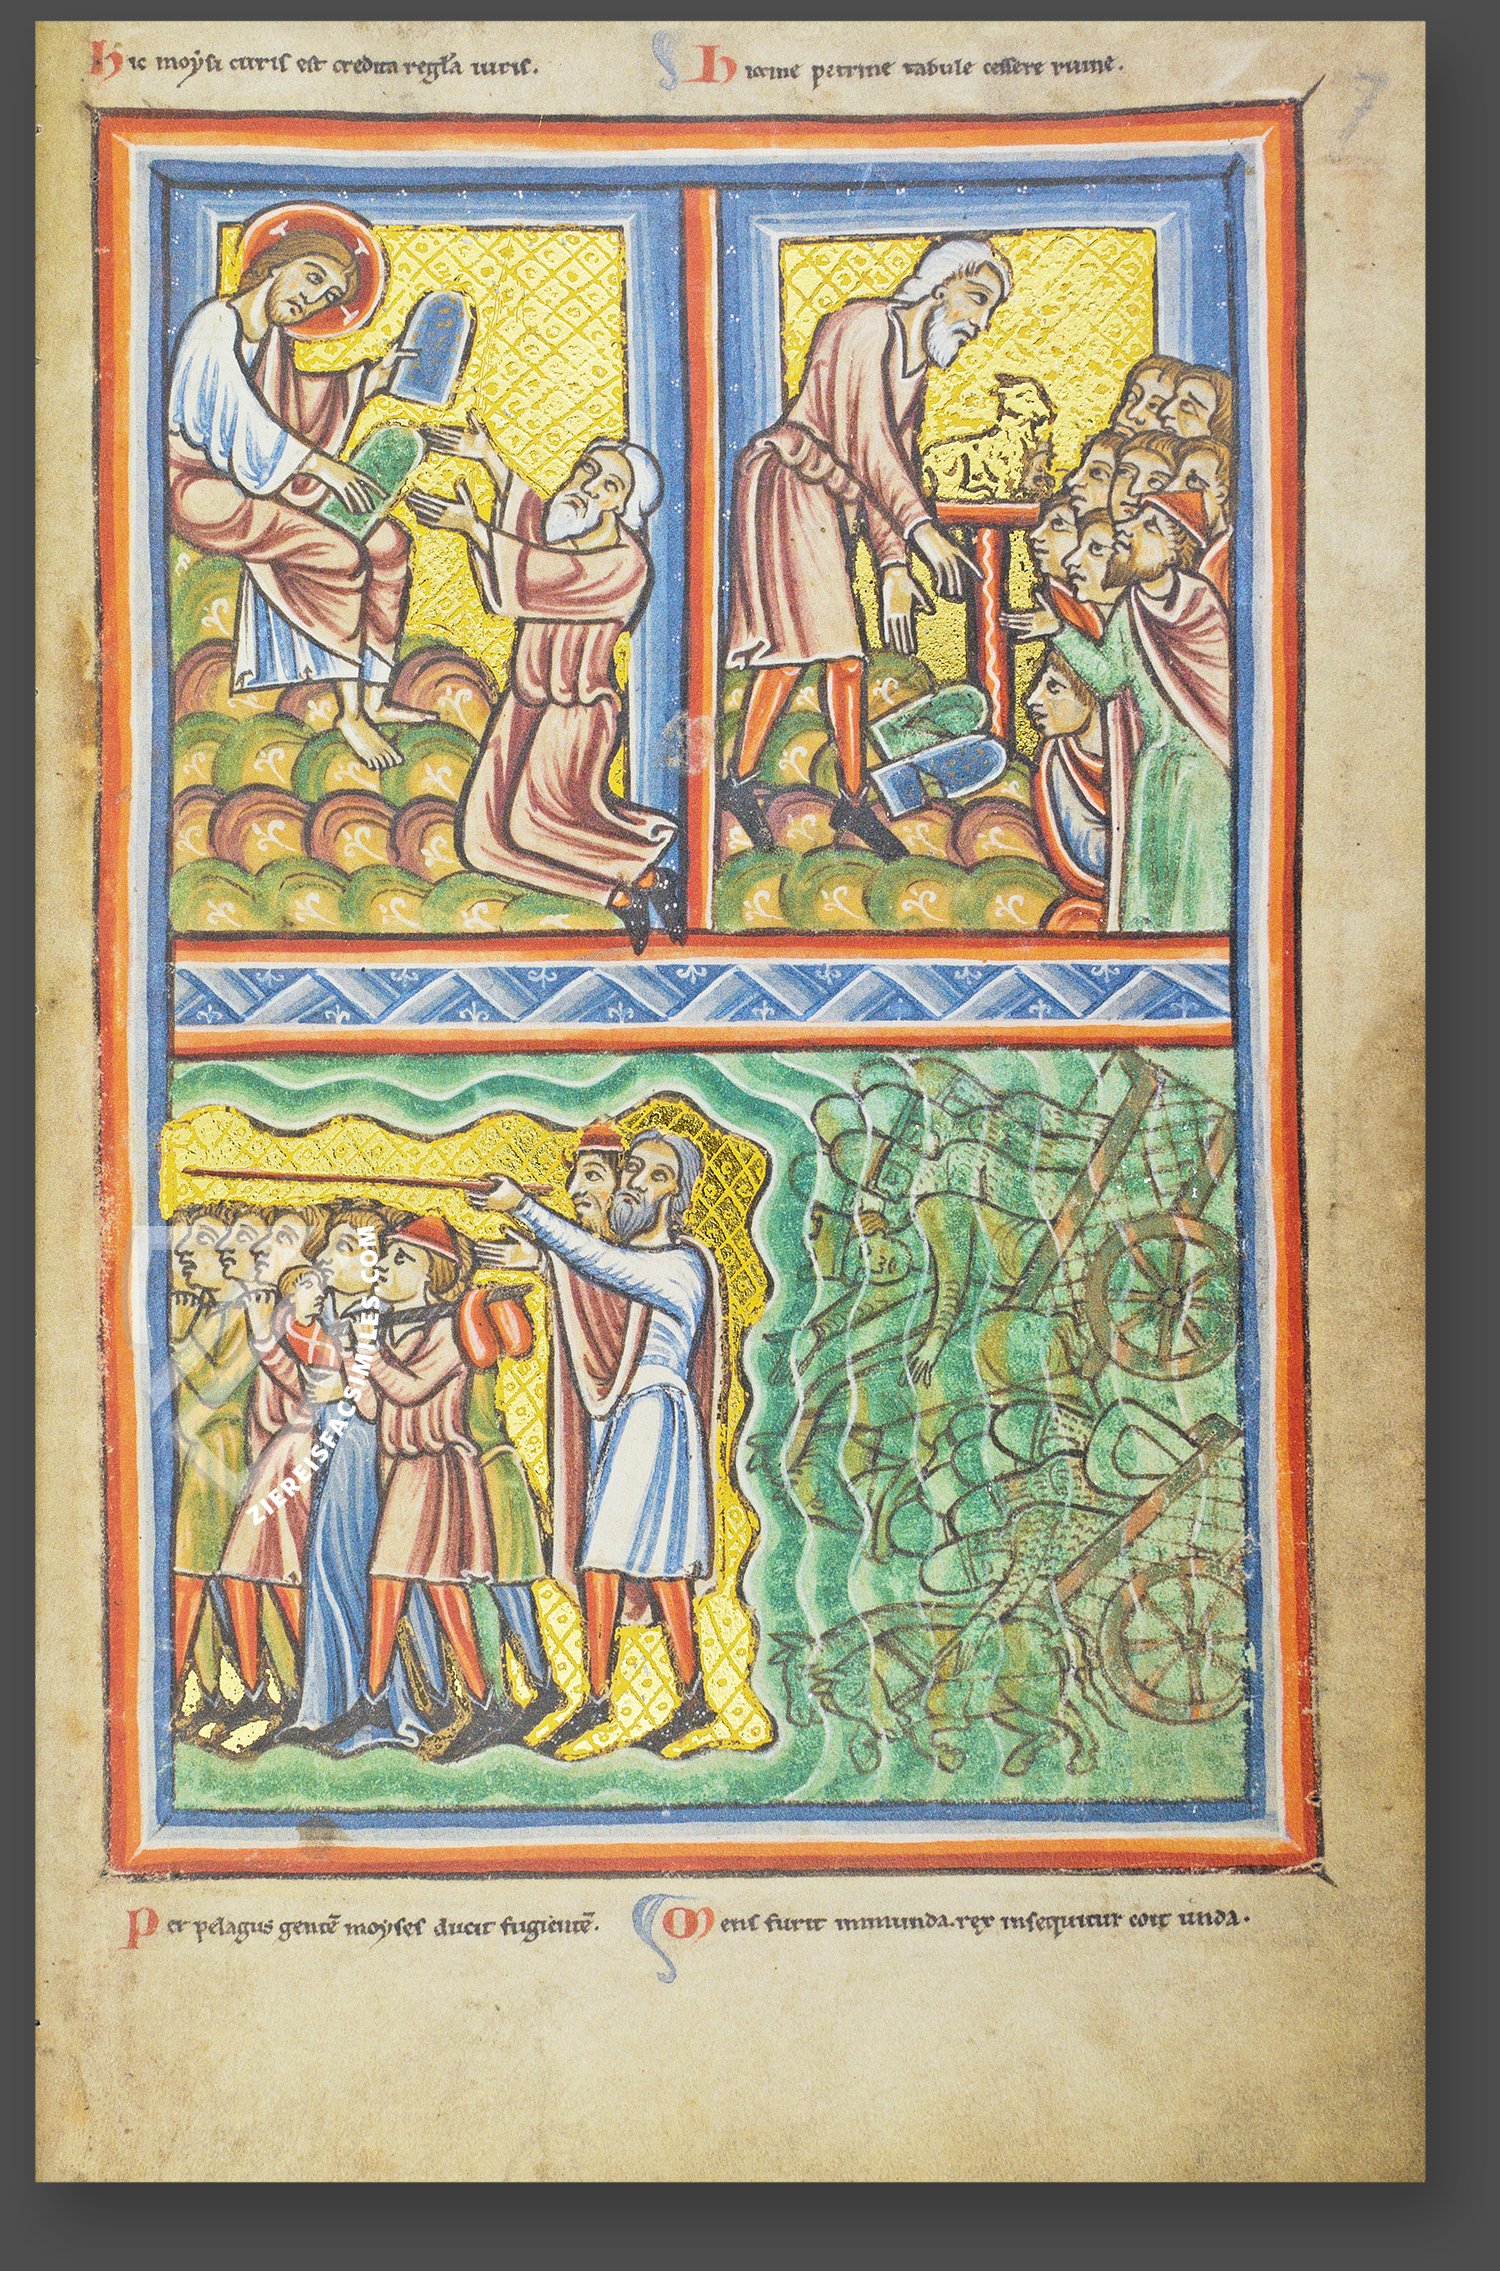 Hic moysi curis est credita regła iuris.
petrine tabule cessere ruine.
7
ZIEREISFACSIMILES.COM
Per pelagus gentē moyses ducit fugientē.
Mens furit inmunda. rex insequitur coit unda.